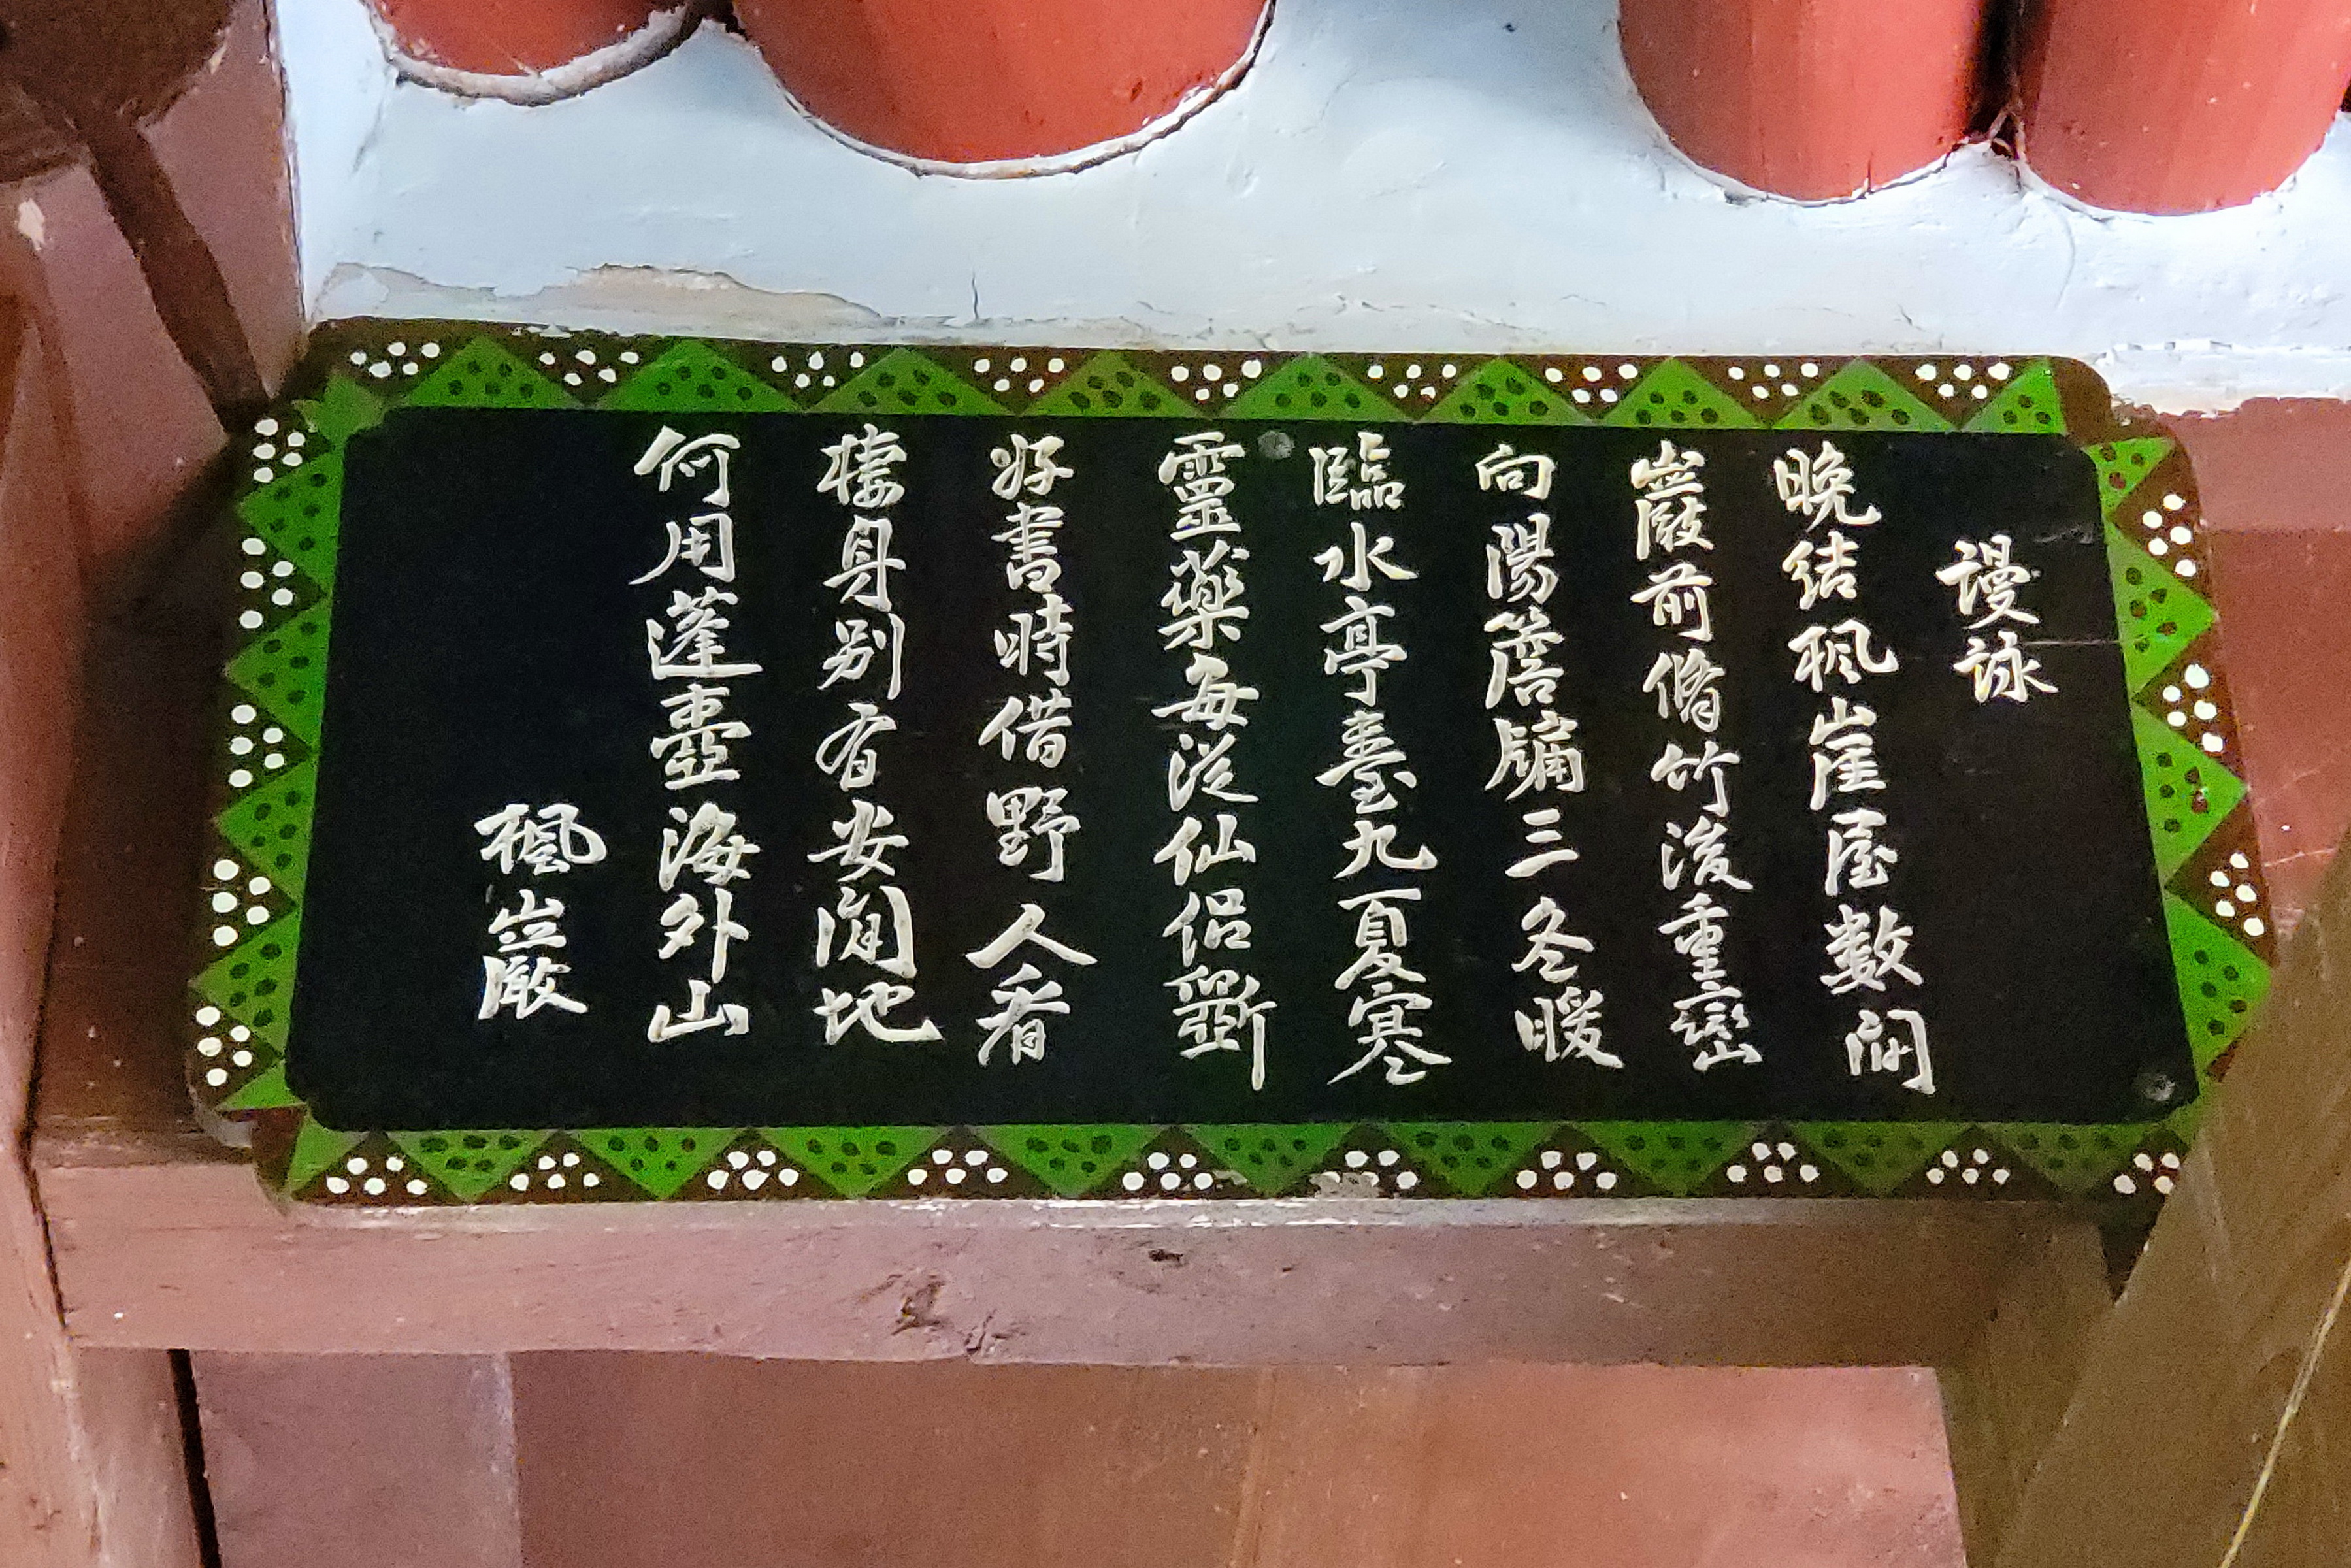 謾詠
晚結楓崖屋數間
巖前脩竹後重巒
向陽簷牖三冬暖
臨水亭臺九夏寒
靈藥每從仙侶斸
好書時借野人看
棲身別有安閒地
何用蓬壺海外山
楓巖